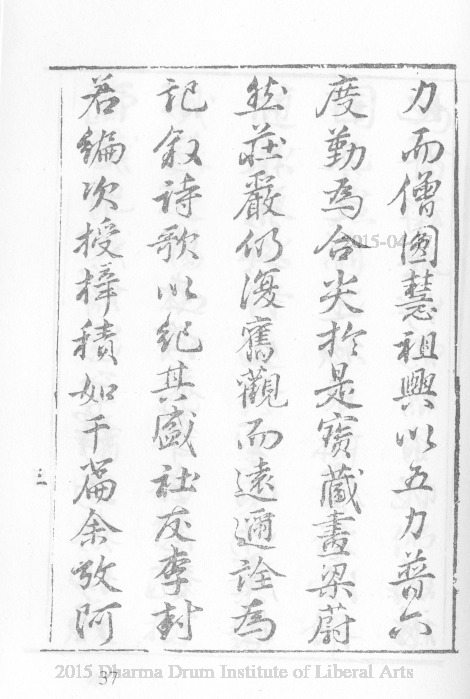 力而僧圓慧祖興以五力普六
度勤為合尖於是寶藏畫梁蔚
然莊嚴仍復舊觀而遠邇詮為
記叙詩歌以紀其盛社友李封
若編次授梓積如千篇余攷阿
2015-04
37
2015 Dharma Drum Institute of Liberal Arts